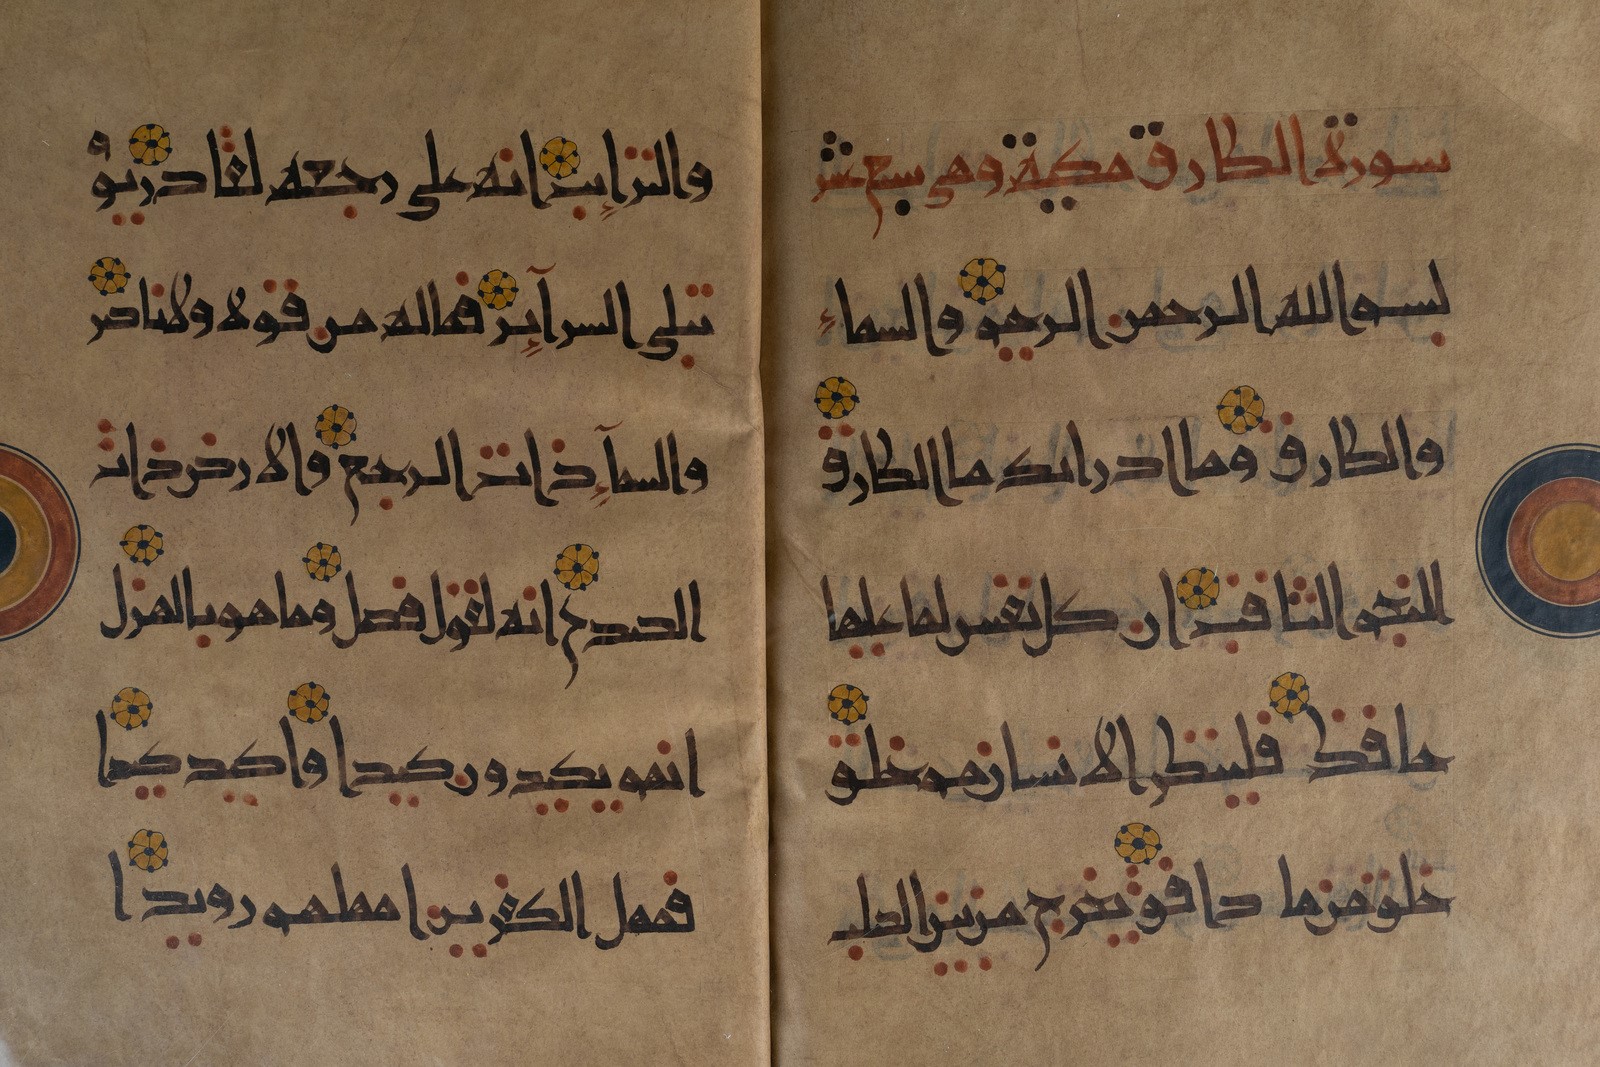 سورة الطارق مكية وهي سبع عشر
بسم الله الرحمن الرحيم والسماء
والطارق وما ادراىك ما الطارق
النجم الثاقب ان كل نفس لما عليها
حافظ فلينظر الانسان مم خلق
خلق من ما دافق يخرج من بين الصلب
والترائب انه على رجعه لقادر يوم
تبلى السرآئر فما له من قوة ولا ناصر
والسمآء ذات الرجع والارض ذات
الصدع انه لقول فصل وما هو بالهزل
انهم يكيدون كيدا واكيد كيدا
فمهل الكفرين امهلهم رويدا